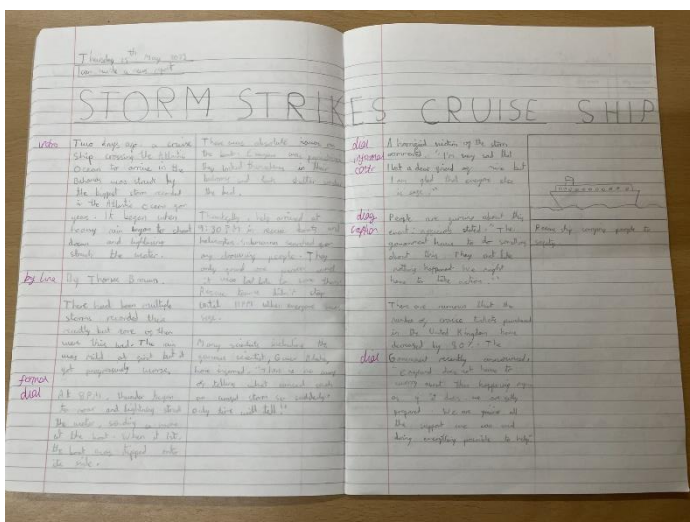 Thursday 15th May 2017
I can write a news report
STORM STRIKES CRUISE SHIP
intro
Two days ago a cruise
ship crossing the Atlantic
Ocean to arrive in the
was struck by
the biggest storm recorded
in the Atlantic Ocean for
years. It began when
heavy rain began to shoot
down and lightning
struck the water.
by line
By Thomas Brown.
There had been multiple
storms recorded there
recently but none as
was this bad. The rain
was mild at first but it
got progressively worse.
formal
dial
At 8 P.M. thunder began
to roar and lightning struck
the water, sending a wave
at the boat. When it hit,
the boat was tipped onto
its side.
There was absolute
the boat. Everyone was
they locked themselves in their
and took shelter under
the bed.
Thankfully, help arrived at
9:30 P.M in rescue boats and
helicopters. Submarines searched for
any drowning people. They
only found one person
it was too late to save them.
until 11 P.M when everyone was
safe.
Many scientists including the
famous scientist,
have enquired. "There is no way
of telling what caused such
an storm so suddenly"
only time will tell."
dial
informal
A survivor of the storm
commented "I'm very sad that
I lost a dear friend of mine but
I am glad that everyone else
is safe."
diag
caption
People are about this
event. stated "The
government have to do something
about this. They act like
nothing happened. We
have to take action."
There are rumours that the
number of cruise tickets purchased
in the United Kingdom have
decreased by 80%. The
dial
Government recently announced,
"Everyone does not have to
worry about this happening again
as if it does we are fully
prepared. We are
the support we can and
doing everything possible to help"
Rescue ship carrying people to
safety